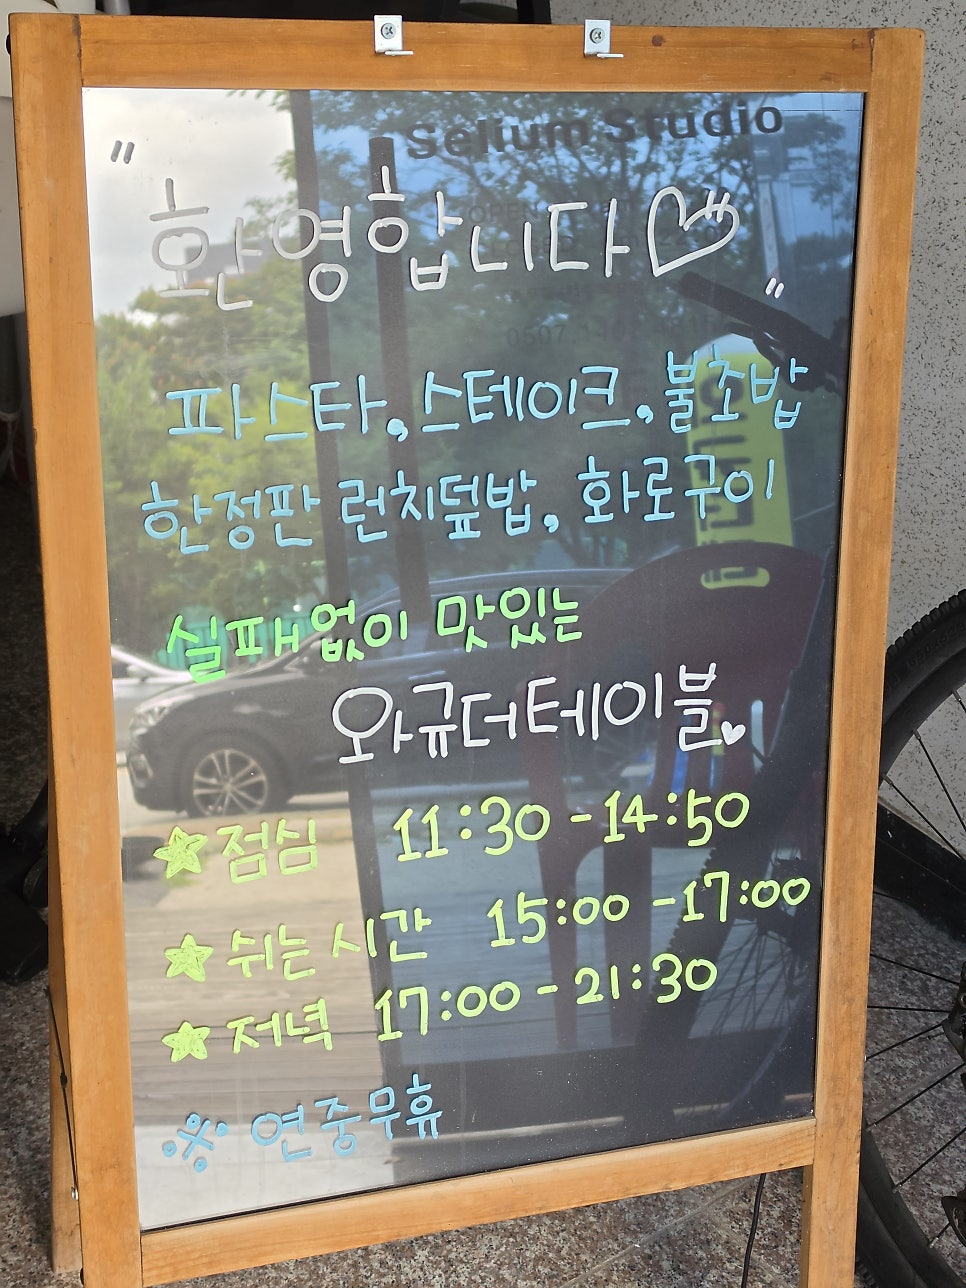 Selium Studio
" 환영합니다♡ "
파스타, 스테이크, 불초밥
한정판 런치덮밥, 화로구이
실패없이 맛있는
와규더테이블♥
★점심 11:30 - 14:50
★쉬는시간 15:00 - 17:00
★저녁 17:00 - 21:30
※ 연중무휴